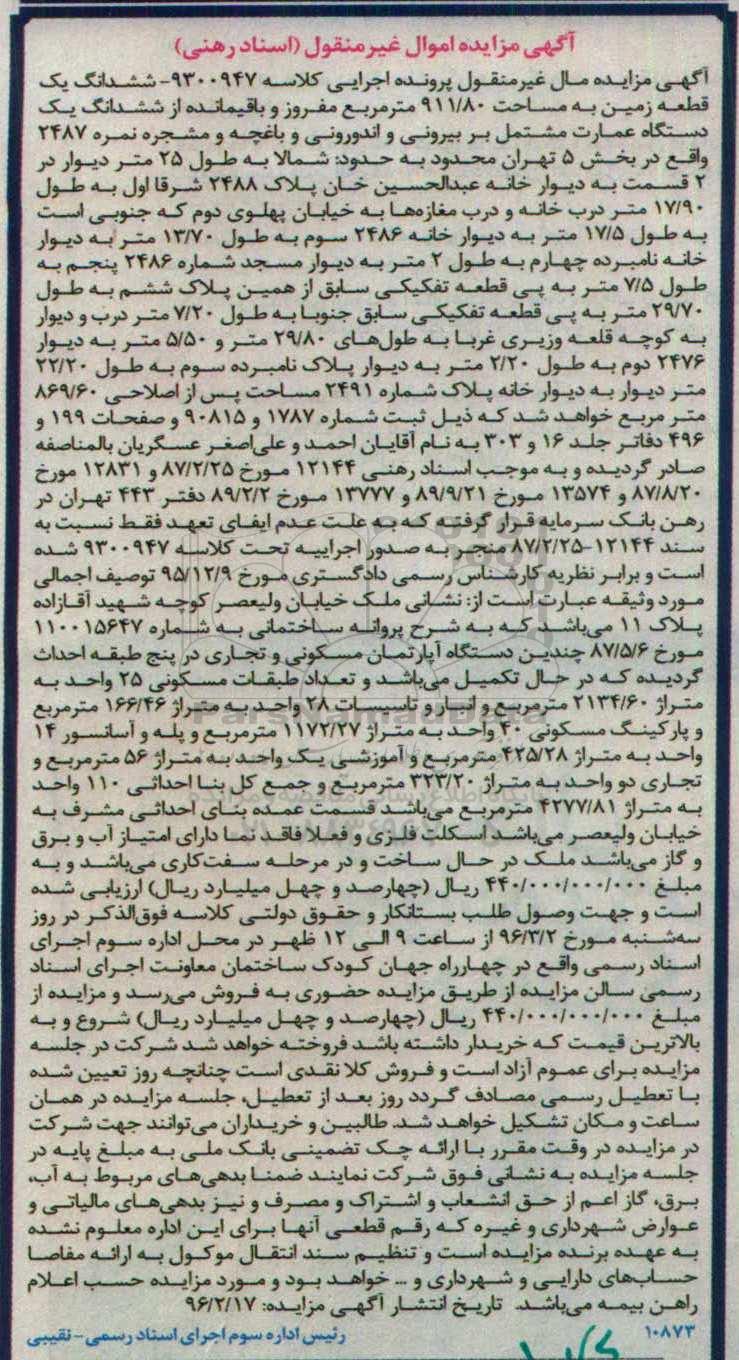 آگهی مزایده اموال غیرمنقول (اسناد رهنی)
آگهی مزایده مال غیرمنقول پرونده اجرایی کلاسه ۹۳۰۰۹۴۷- ششدانگ یک
قطعه زمین به مساحت ۹۱۱/۸۰ مترمربع مفروز و باقیمانده از ششدانگ یک
دستگاه عمارت مشتمل بر بیرونی و اندورونی و باغچه و مشجره نمره ۲۴۸۷
واقع در بخش ۵ تهران محدود به حدود: شمالا به طول ۲۵ متر دیوار در
۲ قسمت به دیوار خانه عبدالحسین خان پلاک ۲۴۸۸ شرقا اول به طول
۱۷/۹۰ متر درب خانه و درب مغازه‌ها به خیابان پهلوی دوم که جنوبی است
به طول ۱۷/۵ متر به دیوار خانه ۲۴۸۶ سوم به طول ۱۳/۷۰ متر به دیوار
خانه نامبرده چهارم به طول ۲ متر به دیوار مسجد شماره ۲۴۸۶ پنجم به
طول ۷/۵ متر به پی قطعه تفکیکی سابق از همین پلاک ششم به طول
۲۹/۷۰ متر به پی قطعه تفکیکی سابق جنوبا به طول ۷/۲۰ متر درب و دیوار
به کوچه قلعه وزیری غربا به طول‌های ۲۹/۸۰ متر و ۵/۵۰ متر به دیوار
۲۴۷۶ دوم به طول ۲/۲۰ متر به دیوار پلاک نامبرده سوم به طول ۲۲/۲۰
متر دیوار به دیوار خانه پلاک شماره ۲۴۹۱ مساحت پس از اصلاحی ۸۶۹/۶۰
متر مربع خواهد شد که ذیل ثبت شماره ۱۷۸۷ و ۹۰۸۱۵ و صفحات ۱۹۹ و
۴۹۶ دفاتر جلد ۱۶ و ۳۰۳ به نام آقایان احمد و علی‌اصغر عسگریان بالمناصفه
صادر گردیده و به موجب اسناد رهنی ۱۲۱۴۴ مورخ ۸۷/۲/۲۵ و ۱۲۸۳۱ مورخ
۸۷/۸/۲۰ و ۱۳۵۷۴ مورخ ۸۹/۹/۲۱ و ۱۳۷۷۷ مورخ ۸۹/۲/۲ دفتر ۴۴۳ تهران در
رهن بانک سرمایه قرار گرفته که به علت عدم ایفای تعهد فقط نسبت به
سند ۱۲۱۴۴-۸۷/۲/۲۵ منجر به صدور اجراییه تحت کلاسه ۹۳۰۰۹۴۷ شده
است و برابر نظریه کارشناس رسمی دادگستری مورخ ۹۵/۱۲/۹ توصیف اجمالی
مورد وثیقه عبارت است از: نشانی ملک خیابان ولیعصر کوچه شهید آقازاده
پلاک ۱۱ می‌باشد که به شرح پروانه ساختمانی به شماره ۱۱۰۰۱۵۶۴۷
مورخ ۸۷/۵/۶ چندین دستگاه آپارتمان مسکونی و تجاری در پنج طبقه احداث
گردیده که در حال تکمیل می‌باشد و تعداد طبقات مسکونی ۲۵ واحد به
متراژ ۲۱۳۴/۶۰ مترمربع و انبار و تاسیسات ۲۸ واحد به متراژ ۱۶۶/۴۶ مترمربع
و پارکینگ مسکونی ۴۰ واحد به متراژ ۱۱۷۲/۲۷ مترمربع و پله و آسانسور ۱۴
واحد به متراژ ۴۲۵/۲۸ مترمربع و آموزشی یک واحد به متراژ ۵۶ مترمربع و
تجاری دو واحد به متراژ ۳۲۳/۲۰ مترمربع و جمع کل بنا احداثی ۱۱۰ واحد
به متراژ ۴۲۷۷/۸۱ مترمربع می‌باشد قسمت عمده بنای احداثی مشرف به
خیابان ولیعصر می‌باشد اسکلت فلزی و فعلا فاقد نما دارای امتیاز آب و برق
و گاز می‌باشد ملک در حال ساخت و در مرحله سفت‌کاری می‌باشد و به
مبلغ ۴۴۰/۰۰۰/۰۰۰/۰۰۰ ریال (چهارصد و چهل میلیارد ریال) ارزیابی شده
است و جهت وصول طلب بستانکار و حقوق دولتی کلاسه فوق‌الذکر در روز
سه‌شنبه مورخ ۹۶/۳/۲ از ساعت ۹ الی ۱۲ ظهر در محل اداره سوم اجرای
اسناد رسمی واقع در چهارراه جهان کودک ساختمان معاونت اجرای اسناد
رسمی سالن مزایده از طریق مزایده حضوری به فروش می‌رسد و مزایده از
مبلغ ۴۴۰/۰۰۰/۰۰۰/۰۰۰ ریال (چهارصد و چهل میلیارد ریال) شروع و به
بالاترین قیمت که خریدار داشته باشد فروخته خواهد شد شرکت در جلسه
مزایده برای عموم آزاد است و فروش کلا نقدی است چنانچه روز تعیین شده
با تعطیل رسمی مصادف گردد روز بعد از تعطیل، جلسه مزایده در همان
ساعت و مکان تشکیل خواهد شد. طالبین و خریداران می‌توانند جهت شرکت
در مزایده در وقت مقرر با ارائه چک تضمینی بانک ملی به مبلغ پایه در
جلسه مزایده به نشانی فوق شرکت نمایند ضمنا بدهی‌های مربوط به آب،
برق، گاز اعم از حق انشعاب و اشتراک و مصرف و نیز بدهی‌های مالیاتی و
عوارض شهرداری و غیره که رقم قطعی آنها برای این اداره معلوم نشده
به عهده برنده مزایده است و تنظیم سند انتقال موکول به ارائه مفاصا
حساب‌های دارایی و شهرداری و ... خواهد بود و مورد مزایده حسب اعلام
راهن بیمه می‌باشد. تاریخ انتشار آگهی مزایده: ۹۶/۲/۱۷
۱۰۸۷۳ رئیس اداره سوم اجرای اسناد رسمی- نقیبی
ParsNamadData